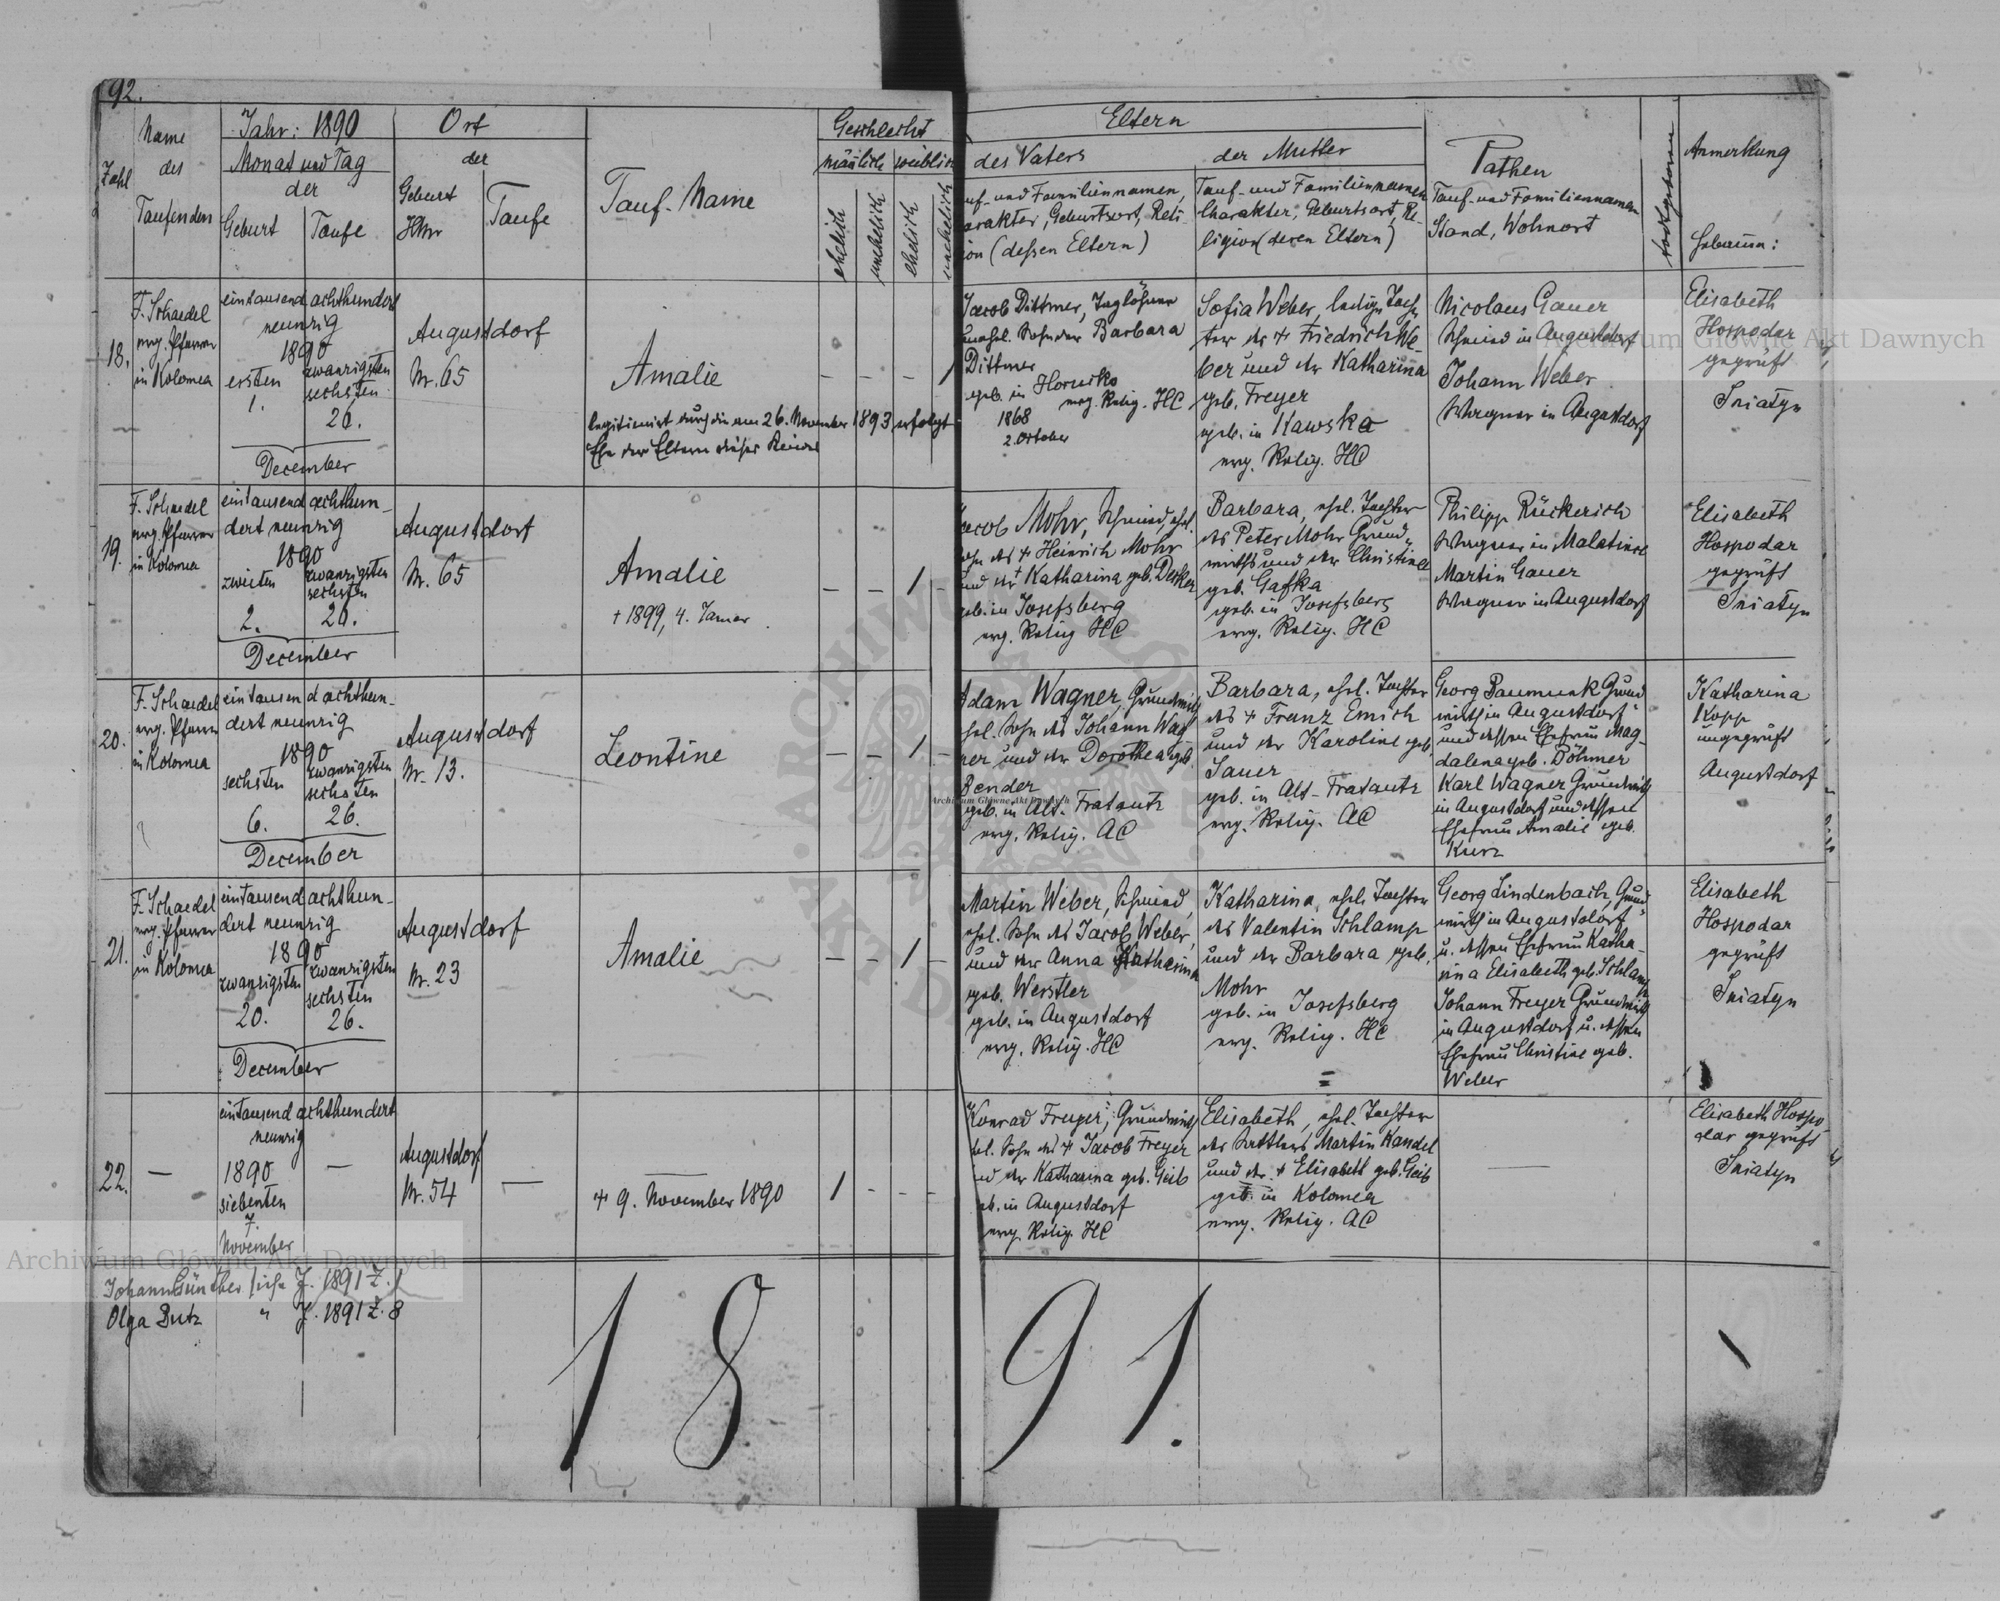 92.
Zahl
Name
des
Taufenden
Jahr: 1890
Monat und Tag
der
Geburt
Taufe
Ort
der
Geburt
HNr
Taufe
Tauf-Name
Geschlecht
mänlich
weiblich
ehelich
unehelich
ehelich
unehelich
Eltern
des Vaters
uf- und Familiennamen,
arakter, Geburtsort, Reli-
ion (deßen Eltern)
der Mutter
Tauf- und Familiennamen
Charakter, Geburtsort, Re-
ligion (deren Eltern)
Pathen
Tauf- und Familiennamen
Stand, Wohnort
todtgeboren
Anmerkung
Hebamm:
18.
F. Schaedel
evg. Pfarrer
in Kolomea
eintausend achthundert
neunzig
1890
ersten
1.
zwanzigsten
sechsten
26.
December
Augustdorf
Nr. 65
Amalie
legitimirt durch die am 26. November 1893 erfolgte
Ehe der Eltern dieses Kindes
Jacob Dittmer, Taglöhner
unehel. Sohn der Barbara
Dittmer
geb. in Horucko
evg. Relig. HC
1868
2. October
Sofia Weber, ledige Toch
ter des + Friedrich We-
ber und der Katharina
geb. Freyer
geb. in Kawska
evg. Relig. HC
Nicolaus Gauer
Schmied in Augustdorf
Johann Weber
Wagner in Augustdorf
Elisabeth
Hospodar
geprüft
Sniatyn
19.
F. Schaedel
evg. Pfarrer
in Kolomea
eintausend achthun-
dert neunzig
1890
zweiten
2.
zwanzigsten
sechsten
26.
December
Augustdorf
Nr. 65
Amalie
+ 1899, 4. Janer
Jacob Mohr, Schmied, ehel.
Sohn des + Heinrich Mohr
und der + Katharina geb. Decker
geb. in Josefsberg
evg. Relig HC
Barbara, ehel. Tochter
des Peter Mohr Grund-
wirths und der Christine
geb. Gafka
geb. in Josefsberg
evg. Relig. HC
Philipp Rückerich
Wagner in Malatince
Martin Gauer
Wagner in Augustdorf
Elisabeth
Hospodar
geprüft
Sniatyn
20.
F. Schaedel
evg. Pfarrer
in Kolomea
eintausend achthun-
dert neunzig
1890
sechsten
6.
zwanzigsten
sechsten
26.
December
Augustdorf
Nr. 13.
Leontine
Adam Wagner, Grundwirth
ehel. Sohn des Johann Wag-
ner und der Dorothea geb.
Bender
geb. in Alt-Fratautz
evg. Relig. AC
Barbara, ehel. Tochter
des + Franz Emich
und der Karoline geb.
Sauer
geb. in Alt-Fratautz
evg. Relig. AC
Georg Baumunk Grund
wirth in Augustdorf
und dessen Ehefrau Mag-
dalena geb. Böhmer
Karl Wagner Grundwirth
in Augustdorf und dessen
Ehefrau Amalie geb.
Kurz
Katharina
Kopp
ungeprüft
Augustdorf
21.
F. Schaedel
evg. Pfarrer
in Kolomea
eintausend achthun-
dert neunzig
1890
zwanzigsten
20.
zwanzigsten
sechsten
26.
December
Augustdorf
Nr. 23
Amalie
Martin Weber, Schmied,
ehel. Sohn des Jacob Weber,
und der Anna Katharina
geb. Werstler
geb. in Augustdorf
evg. Relig. HC
Katharina, ehel. Tochter
des Valentin Schlamp
und der Barbara geb.
Mohr
geb. in Josefsberg
evg. Relig. HC
Georg Lindenbach, Grund-
wirth in Augustdorf
u. dessen Ehefrau Katha-
rina Elisabeth geb. Schlamp
Johann Freyer Grundwirth
in Augustdorf u. dessen
Ehefrau Christine geb.
Weber
Elisabeth
Hospodar
geprüft
Sniatyn
22.
eintausend achthundert
neunzig
1890
siebenten
7.
November
Augustdorf
Nr. 54
+ 9. November 1890
Konrad Freyer, Grundwirth
ehel. Sohn des + Jacob Freyer
und der Katharina geb. Geib
geb. in Augustdorf
evg. Relig. HC
Elisabeth, ehel. Tochter
des Sattlers Martin Kandel
und der + Elisabeth geb. Geib
geb. in Kolomea
evg. Relig. AC
Elisabeth Hospo
dar geprüft
Sniatyn
Johann Günther siehe J. 1891 Z. 1
Olga Butz " J. 1891 Z. 8
1891.
Archiwum Główne Akt Dawnych
Archiwum Główne Akt Dawnych
Archiwum Główne Akt Dawnych